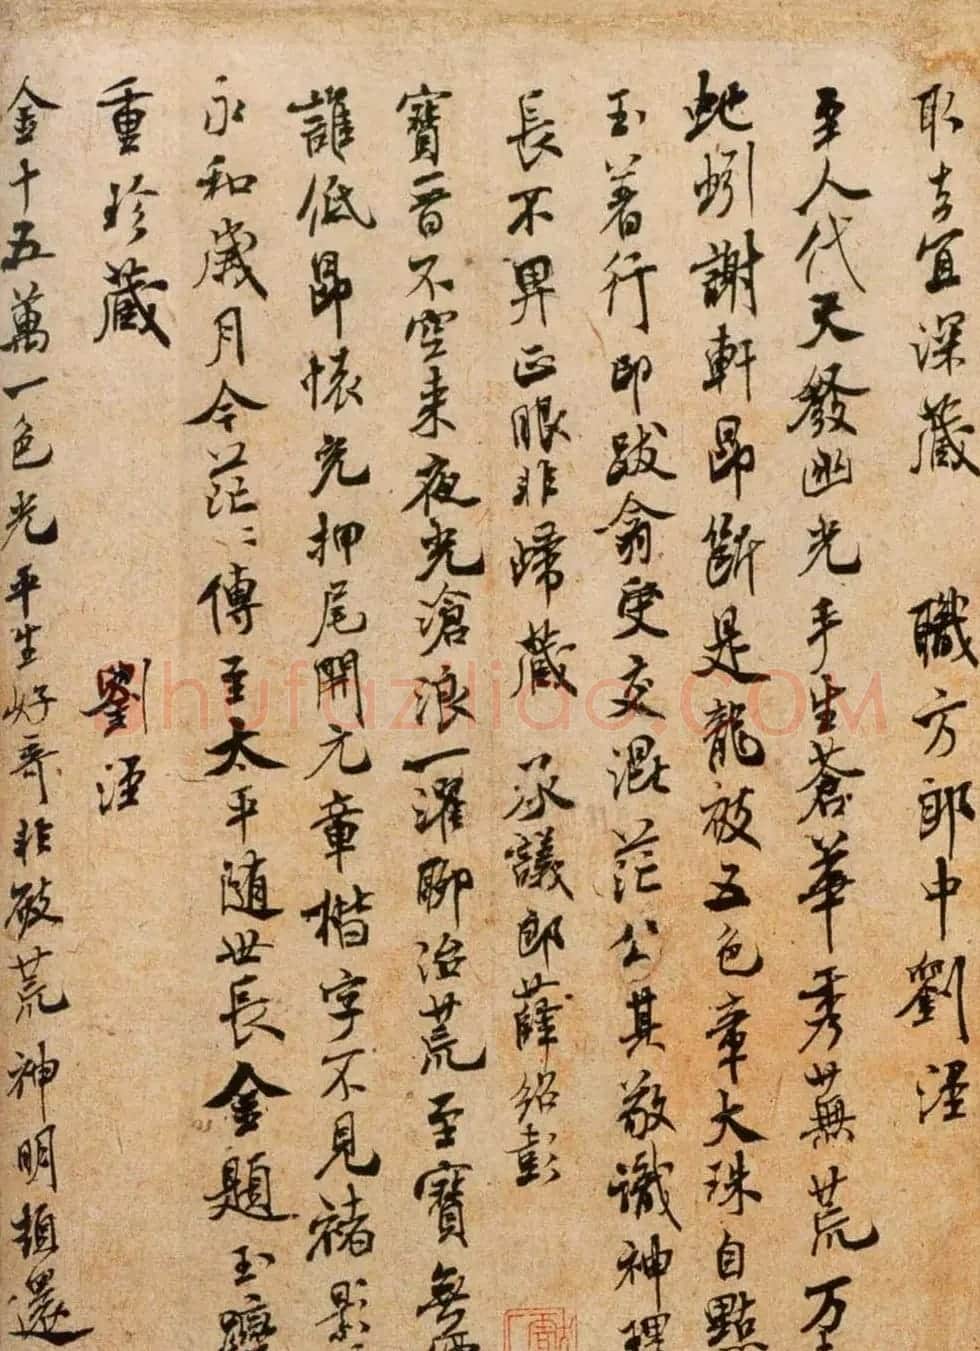 取去宜深藏 職方郎中劉涇
至人代天發幽光手生蒼華秀蕪荒万
虵蚓謝軒昂斷是龍被五色章大珠自點
玉著行印跋翕受交混茫公其敬識神
長不畀正眼非歸藏 承議郎薛紹彭
寶晉不空来夜光滄浪一濯聊治荒至寶無
誰低昂懐充押尾開元章楷字不見禇影
永和歲月今茫〻傳至太平随世長金題玉
重珍藏 劉涇
金十五萬一色光平生好奇非破荒神明頓還
shufaziliao.COM